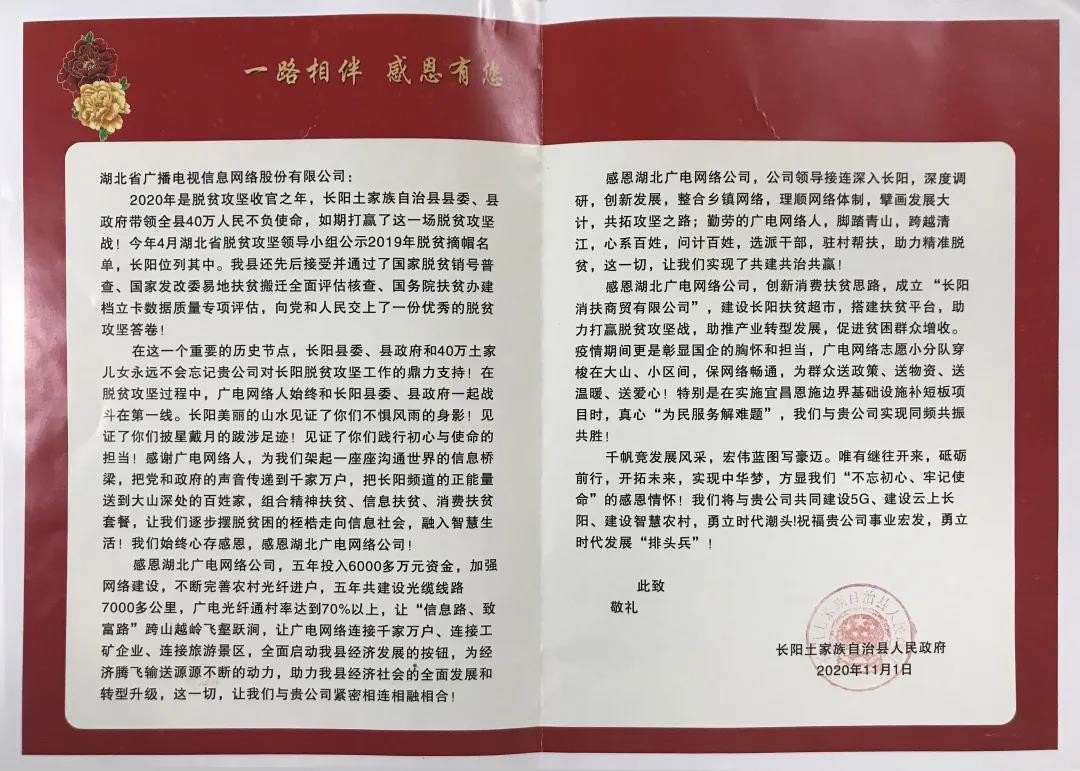 一路相伴 感恩有您
湖北省广播电视信息网络股份有限公司：
2020年是脱贫攻坚收官之年，长阳土家族自治县县委、县
政府带领全县40万人民不负使命，如期打赢了这一场脱贫攻坚
战！今年4月湖北省脱贫攻坚领导小组公示2019年脱贫摘帽名
单，长阳位列其中。我县还先后接受并通过了国家脱贫销号普
查、国家发改委易地扶贫搬迁全面评估核查、国务院扶贫办建
档立卡数据质量专项评估，向党和人民交上了一份优秀的脱贫
攻坚答卷！
在这一个重要的历史节点，长阳县委、县政府和40万土家
儿女永远不会忘记贵公司对长阳脱贫攻坚工作的鼎力支持！在
脱贫攻坚过程中，广电网络人始终和长阳县委、县政府一起战
斗在第一线。长阳美丽的山水见证了你们不惧风雨的身影！见
证了你们披星戴月的跋涉足迹！见证了你们践行初心与使命的
担当！感谢广电网络人，为我们架起一座座沟通世界的信息桥
梁，把党和政府的声音传递到千家万户，把长阳频道的正能量
送到大山深处的百姓家，组合精神扶贫、信息扶贫、消费扶贫
套餐，让我们逐步摆脱贫困的桎梏走向信息社会，融入智慧生
活！我们始终心存感恩，感恩湖北广电网络公司！
感恩湖北广电网络公司，五年投入6000多万元资金，加强
网络建设，不断完善农村光纤进户，五年共建设光缆线路
7000多公里，广电光纤通村率达到70%以上，让“信息路、致
富路”跨山越岭飞壑跃涧，让广电网络连接千家万户、连接工
矿企业、连接旅游景区，全面启动我县经济发展的按钮，为经
济腾飞输送源源不断的动力，助力我县经济社会的全面发展和
转型升级，这一切，让我们与贵公司紧密相连相融相合！
感恩湖北广电网络公司，公司领导接连深入长阳，深度调
研，创新发展，整合乡镇网络，理顺网络体制，擘画发展大
计，共拓攻坚之路；勤劳的广电网络人，脚踏青山，跨越清
江，心系百姓，问计百姓，选派干部，驻村帮扶，助力精准脱
贫，这一切，让我们实现了共建共治共赢！
感恩湖北广电网络公司，创新消费扶贫思路，成立“长阳
消扶商贸有限公司”，建设长阳扶贫超市，搭建扶贫平台，助
力打赢脱贫攻坚战，助推产业转型发展，促进贫困群众增收。
疫情期间更是彰显国企的胸怀和担当，广电网络志愿小分队穿
梭在大山、小区间，保网络畅通，为群众送政策、送物资、送
温暖、送爱心！特别是在实施宜昌恩施边界基础设施补短板项
目时，真心“为民服务解难题”，我们与贵公司实现同频共振
共胜！
千帆竞发展风采，宏伟蓝图写豪迈。唯有继往开来，砥砺
前行，开拓未来，实现中华梦，方显我们“不忘初心、牢记使
命”的感恩情怀！我们将与贵公司共同建设5G、建设云上长
阳、建设智慧农村，勇立时代潮头!祝福贵公司事业宏发，勇立
时代发展“排头兵”！
此致
敬礼
长阳土家族自治县人民政府
2020年11月1日